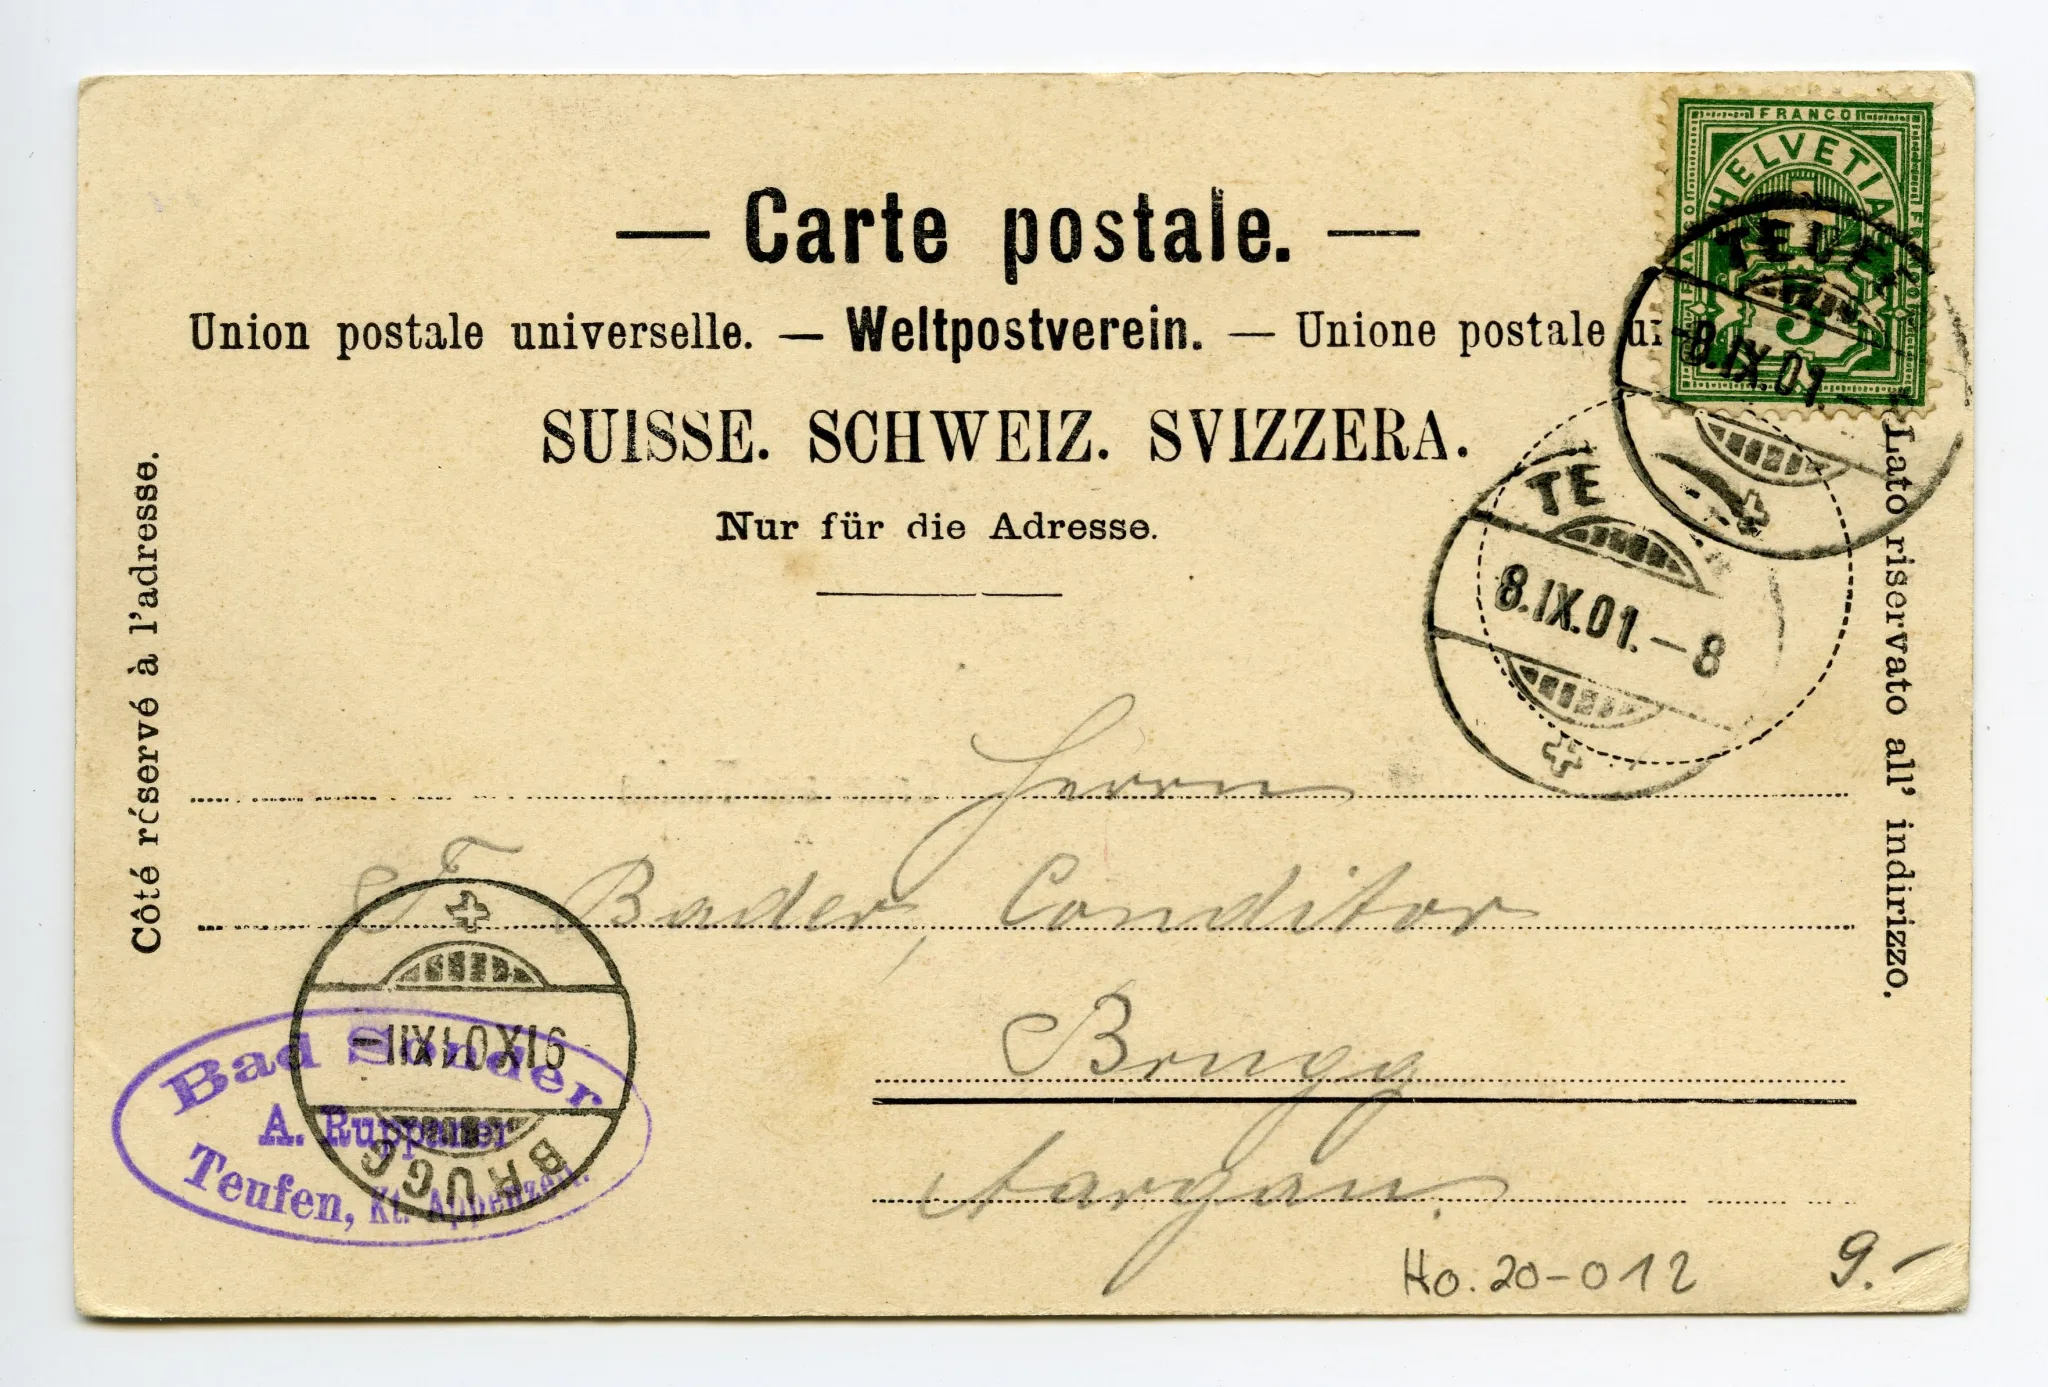 — Carte postale. —
Union postale universelle. — Weltpostverein. — Unione postale
SUISSE. SCHWEIZ. SVIZZERA.
Nur für die Adresse.
Côté réservé à l'adresse.
Lato riservato all' indirizzo.
FRANCO
HELVETIA
5
TEUF
-8.IX.01.-
TE
8.IX.01.-8
Herrn
F. Bader, Conditor
Brugg
Aargau.
BRUGG
Bad Sonder
A. Ruppaner
Teufen, Kt. Appenzell.
Ho. 20-012
9.-